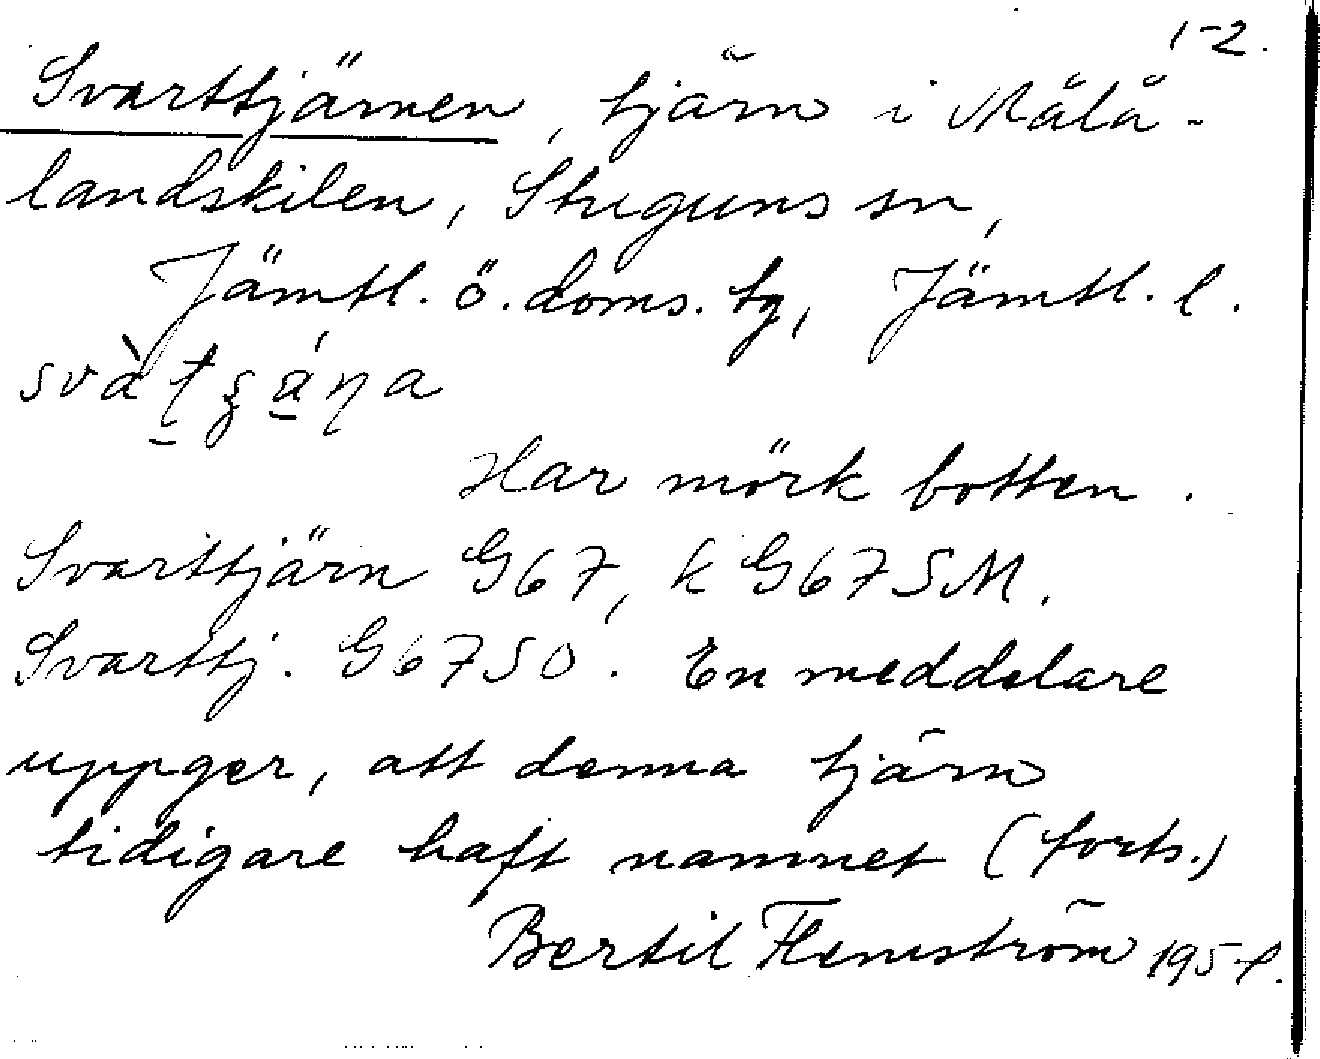 1-2.
Svarttjärnen, tjärn i Mälå-
landskilen, Stuguns sn,
Jämtl. ö. doms. tg, Jämtl. l.
Har mörk botten.
Svarttjärn G67, k G67SM.
Svarttj. G67SO. En meddelare
uppger, att denna tjärn
tidigare haft namnet (forts.)
Bertil Flemström